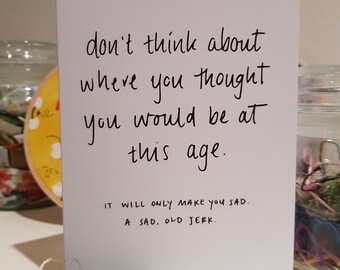 don't think about
where you thought
you would be at
this age.
IT WILL ONLY MAKE YOU SAD.
A SAD, OLD JERK.